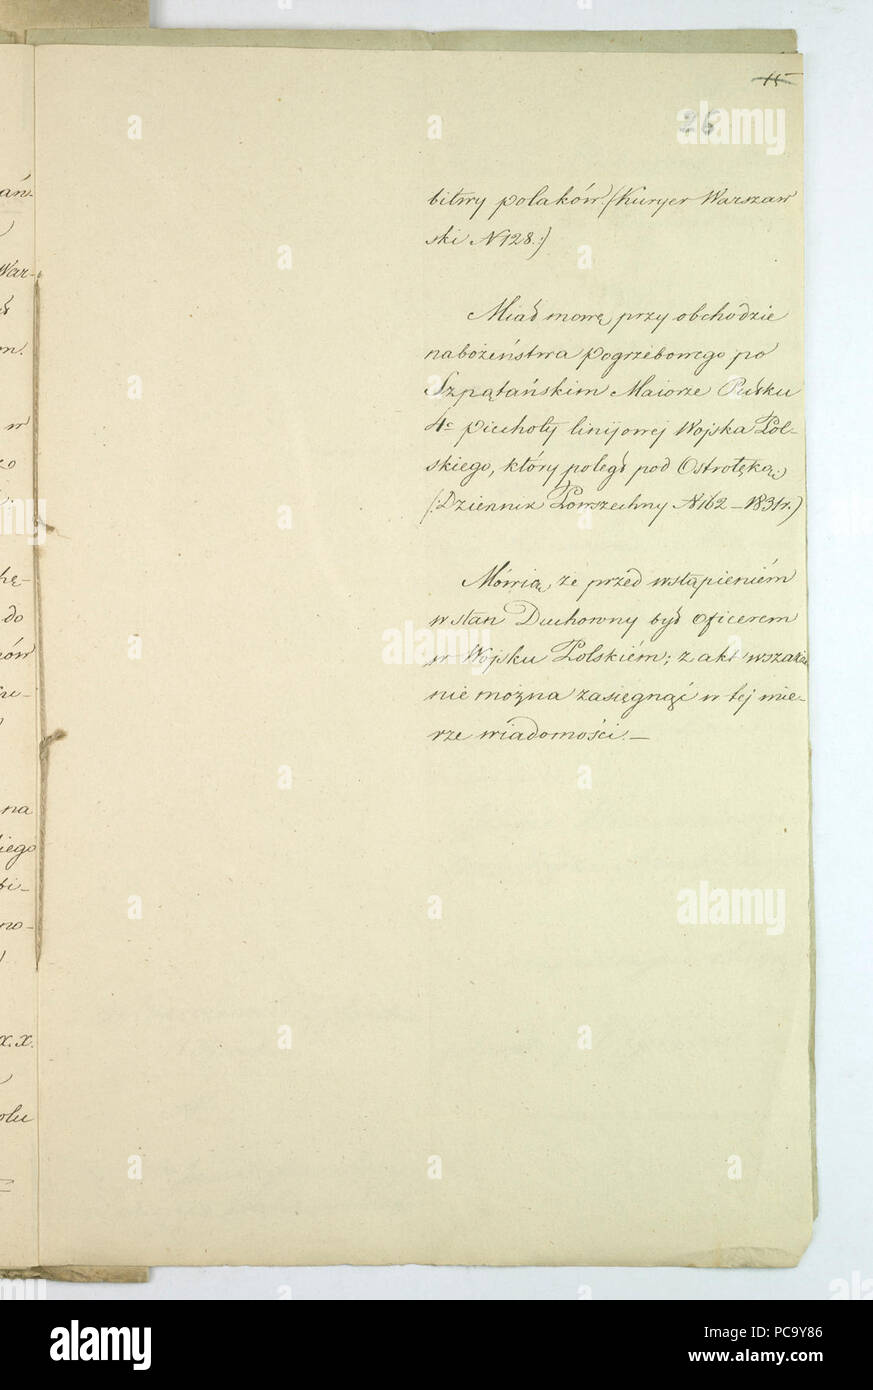 15
26
bitwy polaków. (Kuryer Warszaw
ski N 128.)
Miał mowę przy obchodzie
nabożeństwa pogrzebowego po
Szpątańskim Maiorze Pułku
4º piechoty linijowej Wojska Pol-
skiego, który poległ pod Ostrołęką.
(:Dziennik Powszechny N 162 – 1831 r.)
Mówią, że przed wstąpieniém
w stan Duchowny był oficerem
w Wojsku Polskiém; z akt wszakże
nie można zasięgnąć w tej mie-
rze wiadomości. –
ań-
War-
m.
w
hę-
do
ów
na
iego
bi-
no-
x. x.
olu
alamy
a
alamy stock photo
PC9Y86
www.alamy.com